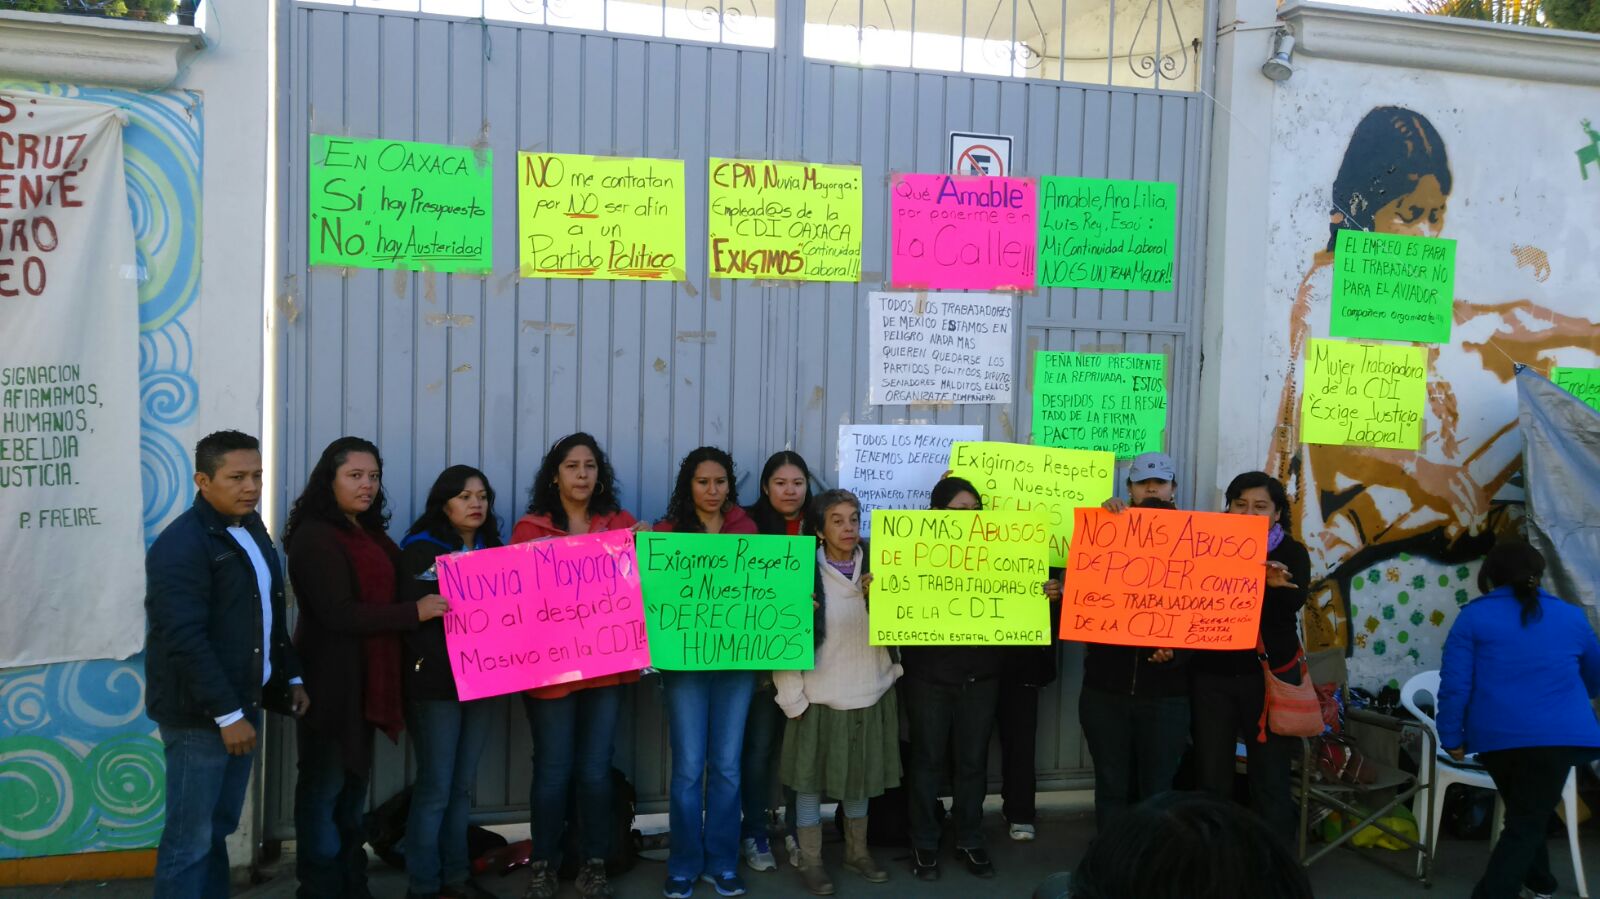 S:
CRUZ,
ENTE
TRO
EO
SIGNACION
AFIRMAMOS,
HUMANOS,
EBELDIA
USTICIA.
P. FREIRE
EN OAXACA
SÍ, hay Presupuesto
"NO" hay AUSTERIDAD
NO me contratan
por NO ser afín
a un
Partido Político
EPN, Nuvia Mayorga:
Emplead@s de la
CDI OAXACA
"EXIGIMOS" Continuidad
Laboral!!
Qué "Amable"
por ponerme en
La Calle!!!
Amable, Ana Lilia,
Luis Rey, Esaú:
Mi Continuidad Laboral
NO ES UN TEMA MENOR!!
TODOS LOS TRABAJADORES
DE MEXICO ESTAMOS EN
PELIGRO NADA MAS
QUIEREN QUEDARSE LOS
PARTIDOS POLITICOS, DIPUTO
SENADORES MALDITOS ELLOS
ORGANIZATE COMPAÑERO
PEÑA NIETO PRESIDENTE
DE LA REPRIVADA. ESTOS
DESPIDOS ES EL RESUL-
TADO DE LA FIRMA
PACTO POR MEXICO
PAN-PRD-PV
TODOS LOS MEXICA
TENEMOS DERECHO
EMPLEO
COMPAÑERO TRABA
Exigimos Respeto
a Nuestros
EL EMPLEO ES PARA
EL TRABAJADOR NO
PARA EL AVIADOR
Compañero organizate!!!
Mujer Trabajadora
de la CDI
"Exige Justicia
Laboral"
Emplea
Nuvia Mayorga"
NO al despido
Masivo en la CDI!!
Exigimos Respeto
a Nuestros
"DERECHOS
HUMANOS"
NO MÁS ABUSOS
DE PODER CONTRA
L@S TRABAJADORAS(ES)
DE LA CDI
DELEGACIÓN ESTATAL OAXACA
NO MÁS ABUSO
DE PODER CONTRA
L@S TRABAJADORAS(es)
DE LA CDI DELEGACIÓN
ESTATAL
OAXACA